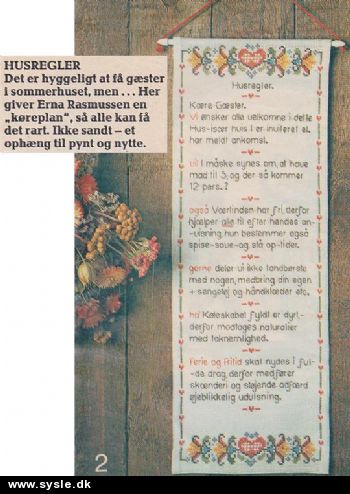 HUSREGLER
Det er hyggeligt at få gæster
i sommerhuset, men ... Her
giver Erna Rasmussen en
„køreplan", så alle kan få
det rart. Ikke sandt – et
ophæng til pynt og nytte.
Husregler.
Kære Gæster.
Vi ønsker alle velkomne i dette
Hus-især hvis I er inviteret el.
har meldt ankomst.
vil I måske synes om, at have
mad til 5, og der så kommer
12 pers.?
også Værtinden har fri, derfor
hjælper alle til efter hendes an-
visning hun bestemmer også
spise-sove-og stå op-tider.
gerne deler vi ikke tandbørste
med nogen, medbring din egen
+ sengetøj og håndklæder etc.
ha' Køleskabet fyldt er dyrt,
derfor modtages naturalier
med taknemlighed.
Ferie og fritid skal nydes i ful-
de drag, derfor medfører
skænderi og støjende adfærd
øjeblikkelig udvisning.
2
www.sysle.dk